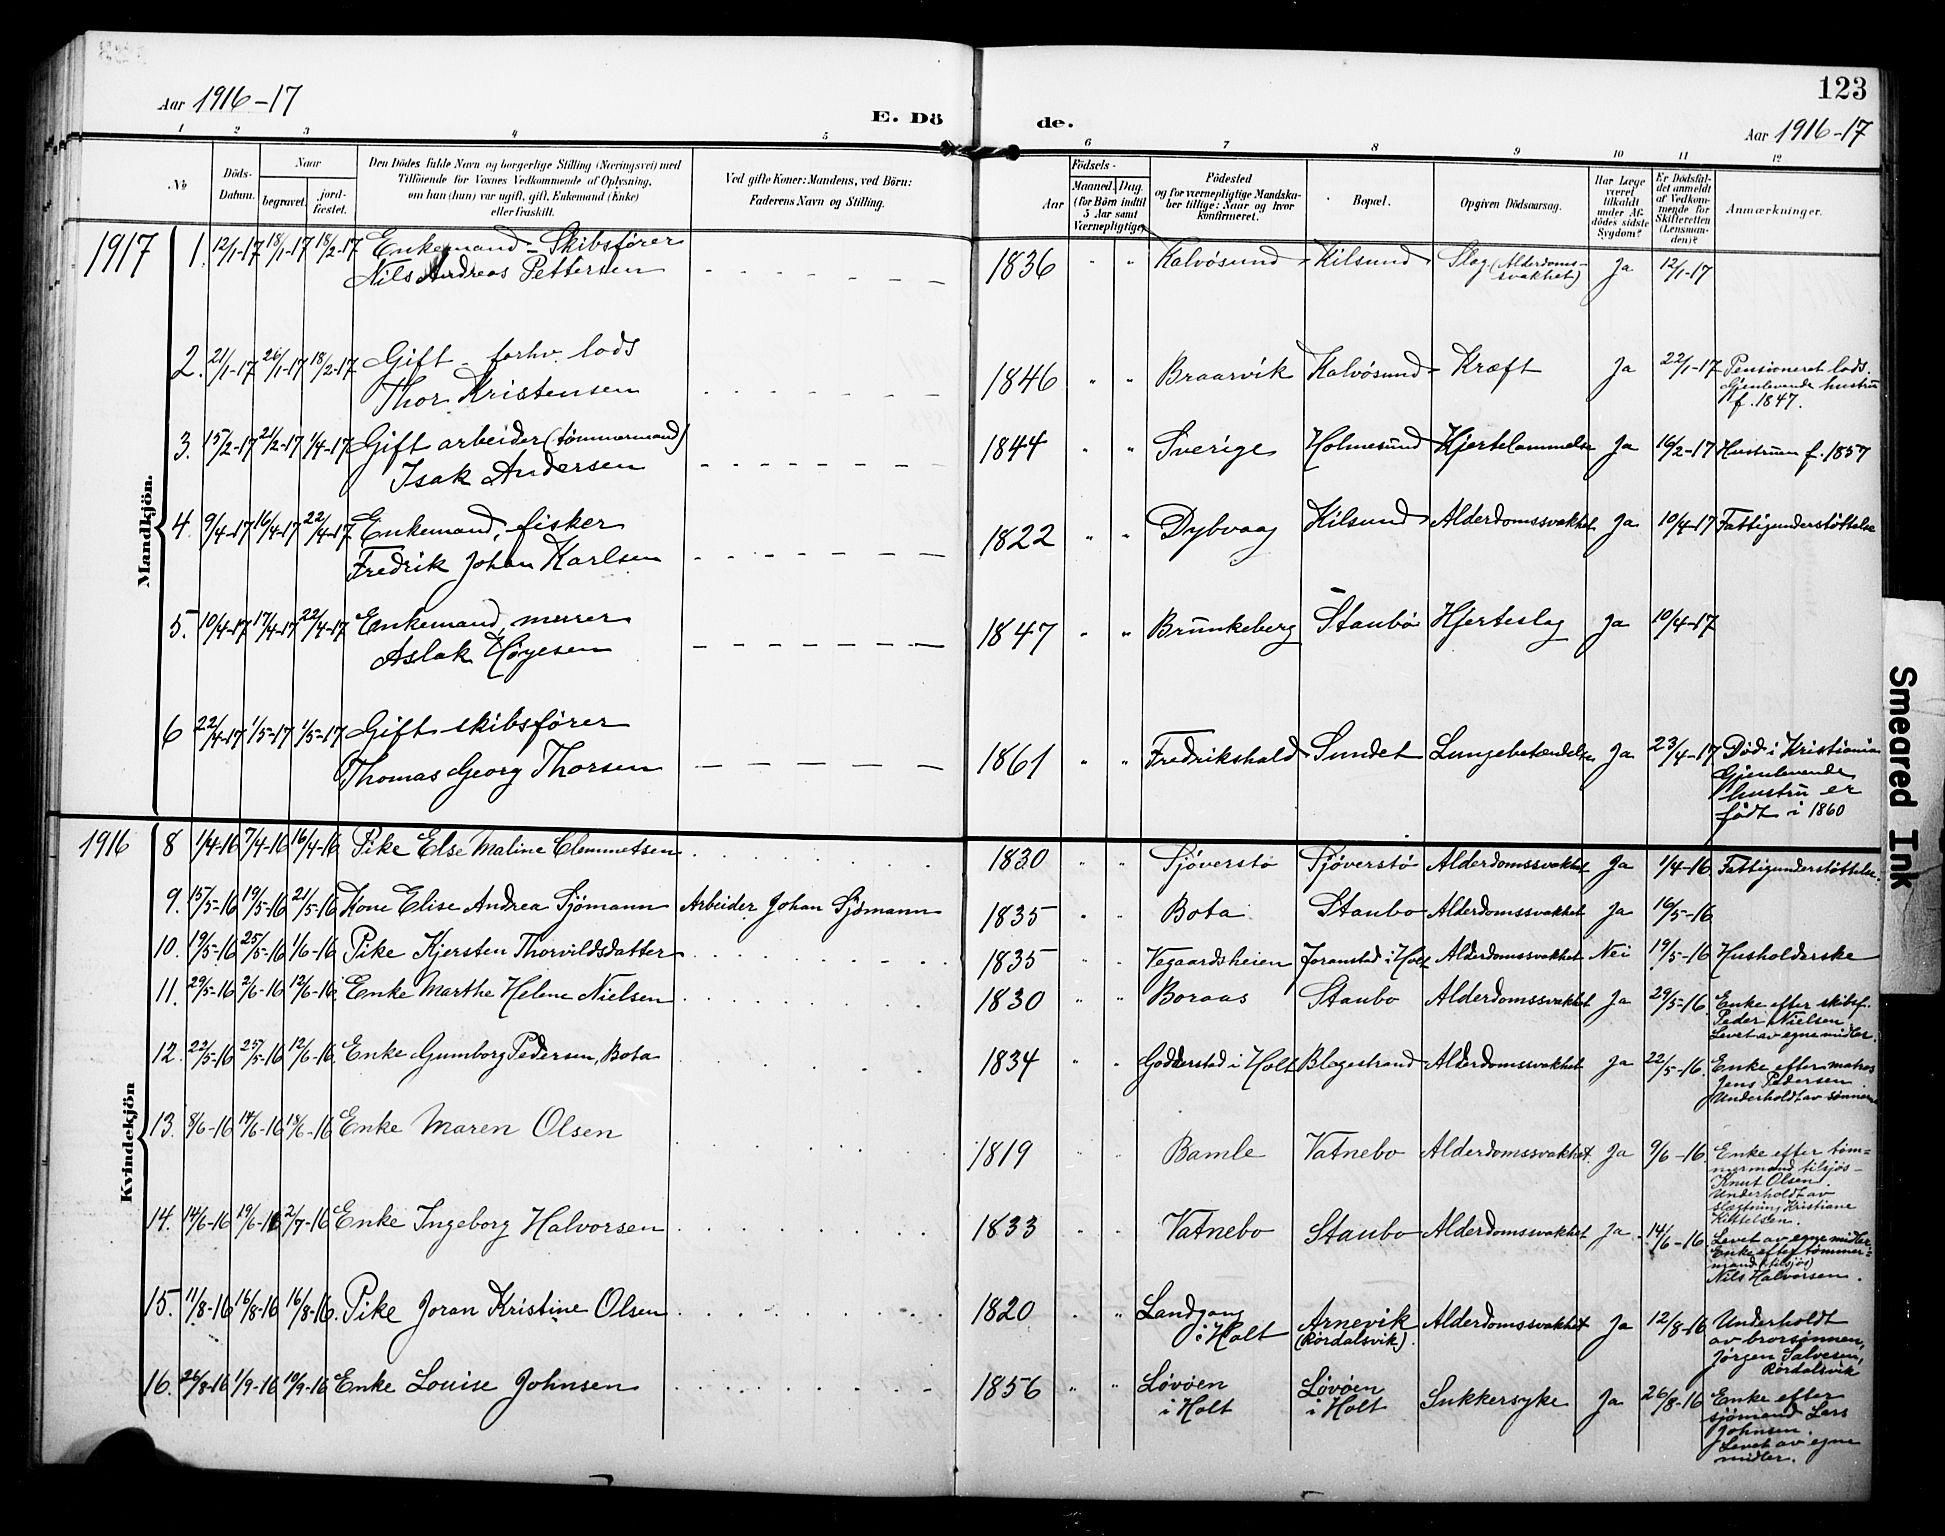 123
Aar 1916-17
E. Dö
de.
Aar 1916-17
1 2 3 4 5 6 7 8 9 10 11 12
No
Döds-
Datum.
Naar
begravet.
jord-
fæstet.
Den Dödes fulde Navn og borgerlige Stilling (Næringsvei) med
Tilföiende for Voxnes Vedkommende af Oplysning,
om han (hun) var ugift, gift, Enkemand (Enke)
eller fraskilt.
Ved gifte Koner: Mandens, ved Börn:
Faderens Navn og Stilling.
Aar
Födsels-
Maaned. Dag.
(for Börn indtil
5 Aar samt
Værnepligtige)
Födested
og for værnepligtige Mandska-
ber tillige: Naar og hvor
konfirmeret.
Bopæl.
Opgiven Dödsaarsag.
Har Læge
været
tilkaldt
under Af-
dödes sidste
Sygdom?
Er Dödsfal-
det anmeldt
af Vedkom-
mende for
Skifteretten
(Lensman-
den)?
Anmærkninger.
1917
Mandkjön.
1. 12/1-17 18/1-17 18/2-17 Enkemand - Skibsfører
Nils Andreas Pettersen
1836 " " Kalvøsund Kilsund Slag (Alderdoms-
svakhet) Ja 12/1-17
2. 21/1-17 26/1-17 18/2-17 Gift - forhv. lods
Thor Kristensen
1846 " " Braarvik Kalvøsund Kræft Ja 22/1-17 Pensioneret lods.
Gjenlevende hustru
f. 1847.
3. 15/2-17 21/2-17 1/4-17 Gift arbeider (tømmermand)
Isak Andersen
1844 " " Sverige Holmesund Hjertelammelse Ja 16/2-17 Hustruen f. 1857
4. 9/4-17 16/4-17 22/4-17 Enkemand, fisker
Fredrik Johan Karlsen
1822 " " Dybvaag Kilsund Alderdomssvakhet Ja 10/4-17 Fattigunderstøttelse
5. 10/4-17 17/4-17 22/4-17 Enkemand, murer
Aslak Høyesen
1847 " " Brunkeberg Staubø Hjerteslag Ja 10/4-17
6 22/4-17 1/5-17 1/5-17 Gift skibsfører
Thomas Georg Thorsen
1861 " " Fredrikshald Sundet Lungebetændelse Ja 23/4-17 Død i Kristiania
Gjenlevende
hustru er
født i 1860
1916
Kvindekjön
8 1/4-16 7/4-16 16/4-16 Pike Else Maline Clemmetsen
1830 " " Sjøverstø Sjøverstø Alderdomssvakhet Ja 1/4-16 Fattigunderstøttelse.
9. 15/5-16 19/5-16 21/5-16 Kone Elise Andrea Sjømann Arbeider Johan Sjømann
1835 " " Bota Staubo Alderdomssvakhet Ja 16/5-16
10. 19/5-16 25/5-16 1/6-16 Pike Kjersten Thorvildsdatter
1835 " " Vegaardsheien Joranstad i Holt Alderdomssvakhet Nei 19/5-16 Husholderske
11. 29/5-16 2/6-16 12/6-16 Enke Marthe Helene Nielsen
1830 " " Boraas Staubo Alderdomssvakhet Ja 29/5-16. Enke efter skibsf.
Peder Nielsen
Levet av egne midler.
12. 22/5-16 25/5-16 12/6-16 Enke Gumborg Pedersen, Bota
1834 " " Godderstad i Holt Blagestrand Alderdomssvakhet Ja 22/5-16. Enke efter matros
Jens Pedersen.
Underholdt av sønnerne
13. 8/6-16 14/6-16 18/6-16 Enke Maren Olsen
1819 " " Bamle Vatnebo Alderdomssvakhet. Ja 9/6-16 Enke efter tøm=
mermand tilsjøs
Knut Olsen.
Underholdt av
slægtning Kristiane
Kittelsen.
14. 14/6-16 19/6-16 2/7-16 Enke Ingeborg Halvorsen
1833 " " Vatnebo Staubo Alderdomssvakhet Ja 14/6-16 Levet av egne midler
Enke efter tømmer=
mand (tilsjøs)
Nils Halvorsen.
15. 11/8-16 16/8-16 16/8-16. Pike Joran Kristine Olsen
1820 " " Landgang
i Holt Arnevik
(Rørdalsvik). Alderdomssvakhet Ja 12/8-16 Underholdt
av brorsønnen,
Jørgen Salvesen,
Rørdalsvik
16. 26/8-16 1/9-16 10/9-16 Enke Louise Johnsen
1856 " " Løvøen
i Holt Løvøen
i Holt Sukkersyke Ja 26/8-16 Enke efter
sjømand Lars
Johnsen.
Levet av egne
midler.
Smeared Ink